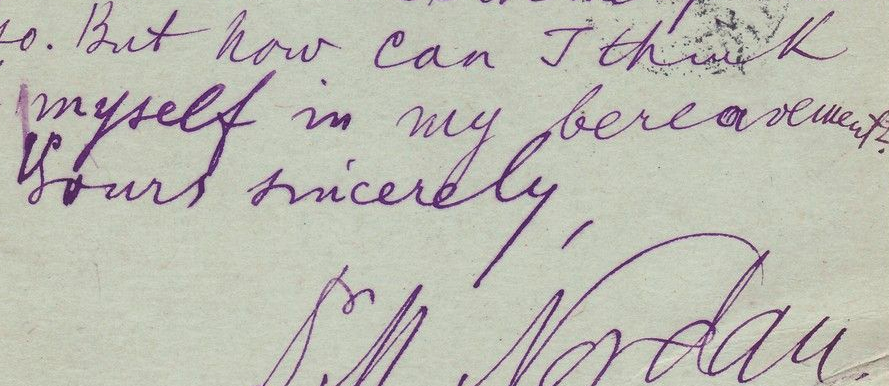 so. But how can I think
myself in my bereavement?
Yours sincerely,
Nordau.